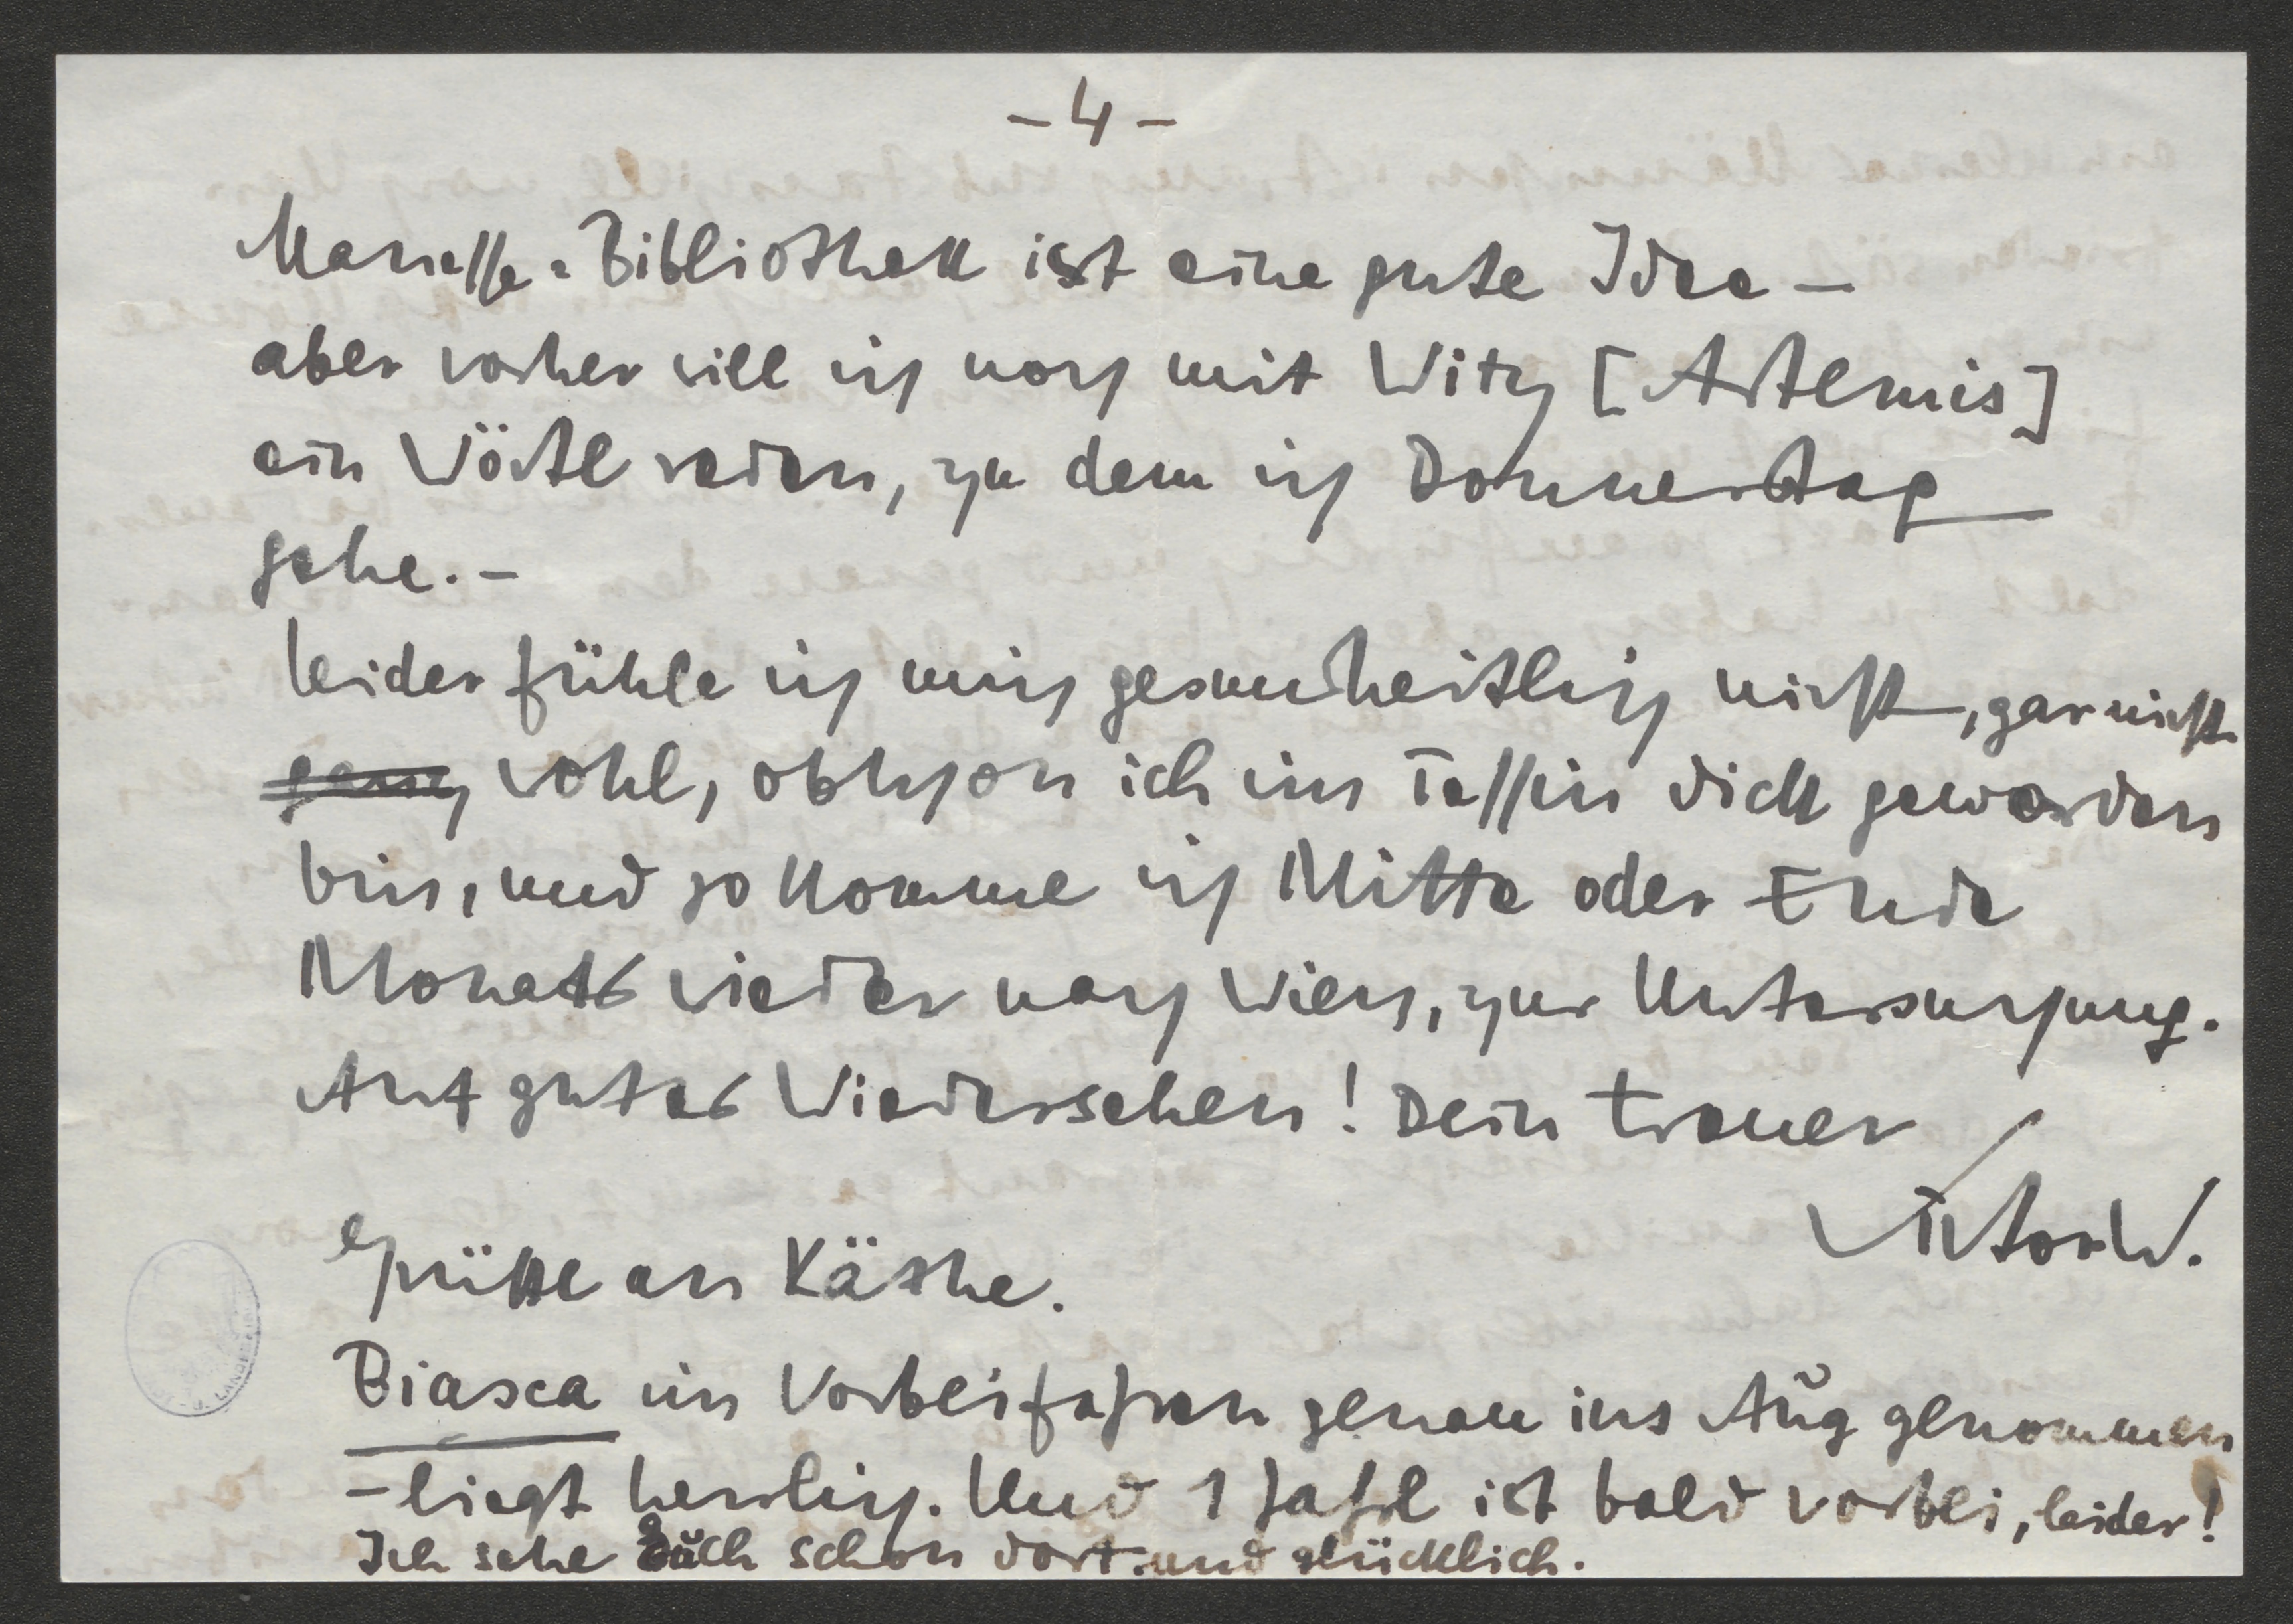 - 4 -
Manesse-Bibliothek ist eine gute Idee –
aber vorher will ich noch mit Witz [Artemis]
ein Wörtl reden, zu dem ich Donnerstag
gehe. –
Leider fühle ich mich gesundheitlich nicht, gar nicht
ganz wohl, obschon ich im Tessin dick geworden
bin, und so komme ich Mitte oder Ende
Monats wieder nach Wien, zur Untersuchung.
Auf gutes Wiedersehen! Dein treuer
Viktor W.
Grüsse an Käthe.
Biasca im Vorbeifahren genau ins Aug genommen
– liegt herrlich. Und 1 Jahrl ist bald vorbei, leider!
Ich sehe Euch schon dort und glücklich.